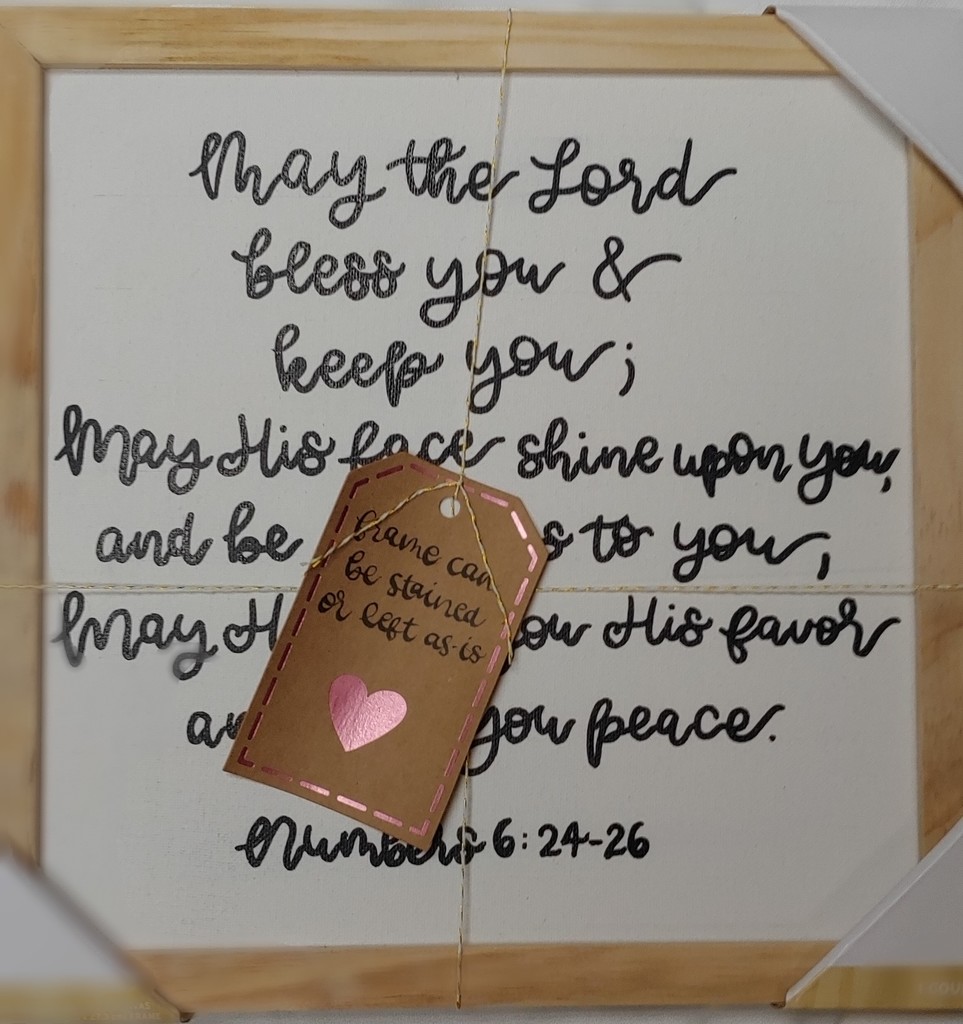 May the Lord
bless you &
keep you;
May His face shine upon you,
and be s to you;
May H ou His favor
an you peace.
Numbers 6:24-26
frame can
be stained
or left as-is